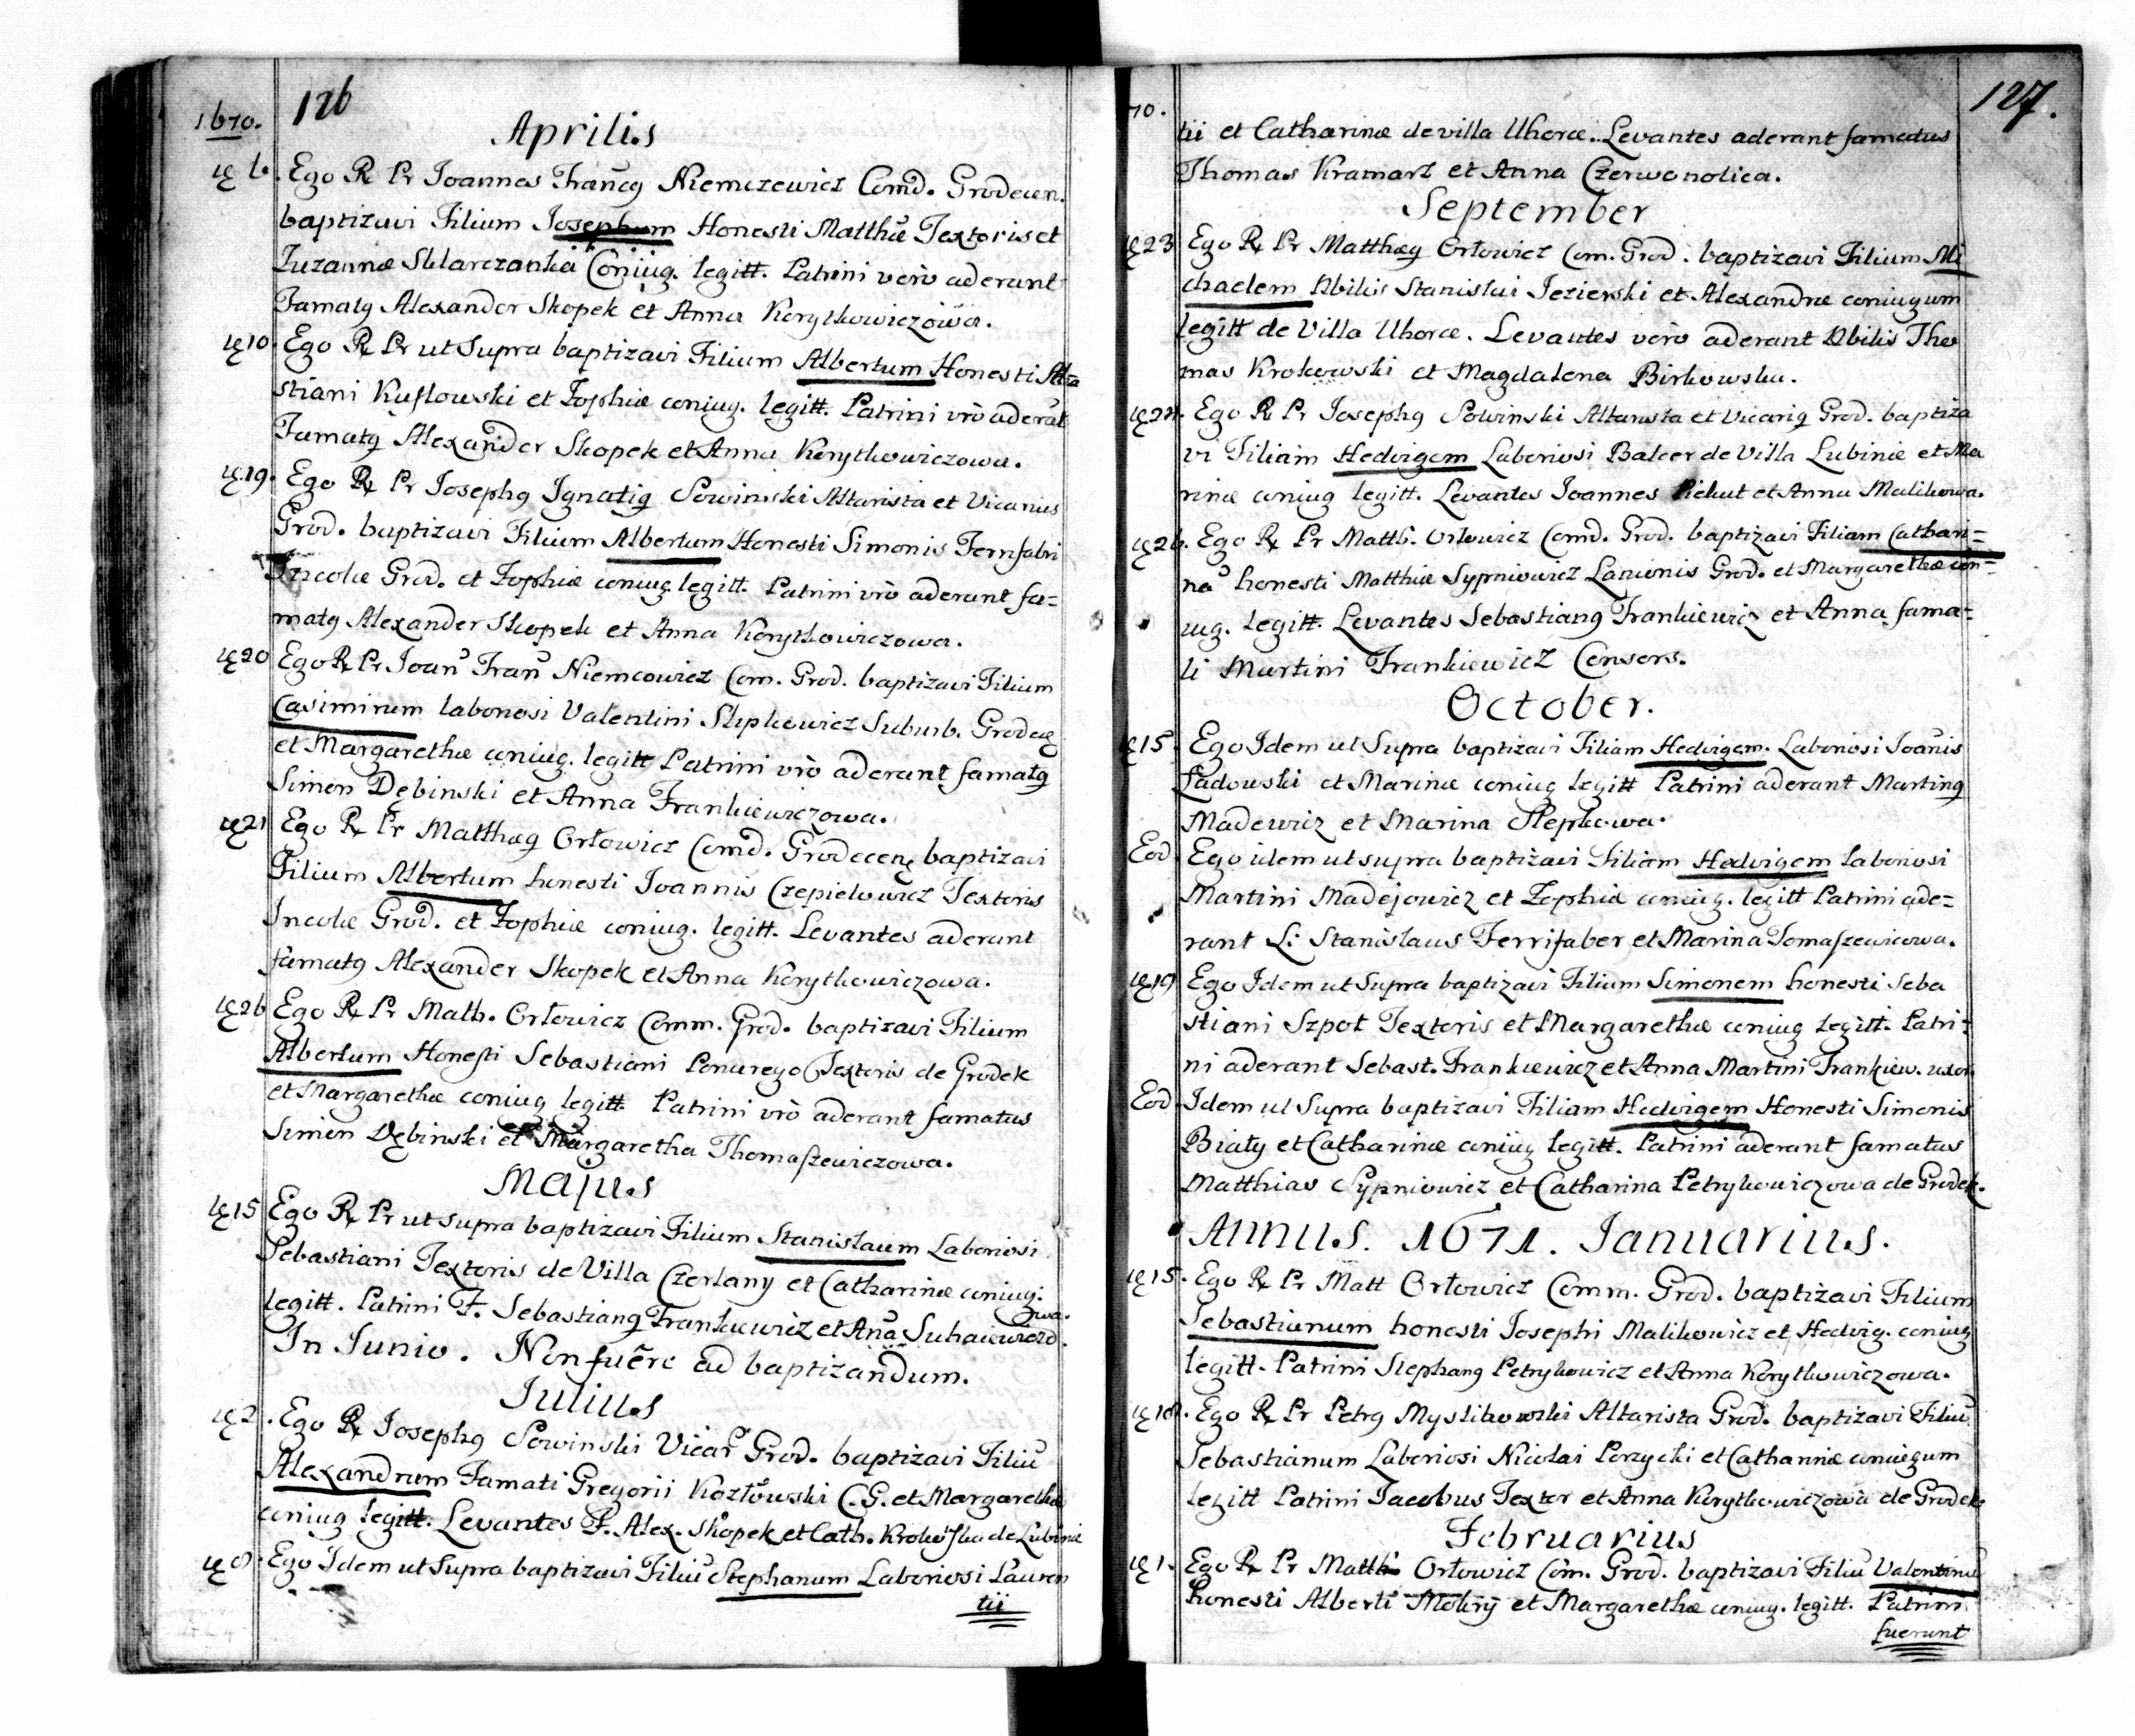 126
1670.
Aprilis
6. Ego R Pr Joannes Francq Niemczewicz Comd. Grodecen.
baptizavi Filium Josephum Honesti Matthiæ Textoris et
Zuzannæ Sklarczanka Coniug. legitt. Patrini verò aderant
Famatq Alexander Skopek et Anna Korytkowiczowa.
10. Ego R Pr ut Supra baptizavi Filium Albertum Honesti
stiani et Zophiæ coniug. legitt. Patrini vrò aderat
Famatq Alexander Skopek et Anna Korytkowiczowa.
19. Ego R Pr Josephq Ignatiq Sowinski Altarista et Vicarius
Grod. baptizavi Filium Albertum Honesti Simonis Ferrifabri
Incolæ Grod. et Zophiæ coniug. legitt. Patrini vrò aderant fa=
matq Alexander Skopek et Anna Korytkowiczowa.
20 Ego R Pr Joan Fran Niemcowicz Com. Grod. baptizavi Filium
Casimirum laboriosi Valentini Slepkowicz Suburb. Grodec
et Margarethæ coniug. legitt Patrini vrò aderant famatq
Simon Dębinski et Anna Frankiewiczowa.
21 Ego R Pr Matthæq Orłowicz Comd. Grodecen baptizavi
Filium Albertum honesti Joannis Czepielowicz Textoris
Incolæ Grod. et Zophiæ coniug. legitt. Levantes aderant
famatq Alexander Skopek et Anna Korytkowiczowa.
26 Ego R Pr Math. Orłowicz Comm. Grod. baptizavi Filium
Albertum Honesti Sebastiani Ponurego Textoris de Grodek
et Margarethæ coniug legitt. Patrini vrò aderant famatus
Simon Dębinski et Margaretha Thomaszewiczowa.
Majus
15 Ego R Pr ut supra baptizavi Filium Stanislaum Laboriosi
Sebastiani Textoris de Villa Czerlany et Catharinæ coniug.
legitt. Patrini F. Sebastianq Frankiewicz et Ana Suhaiewiczo
wa.
In Junio. Non fuêre ad baptizandum.
Julius
2. Ego R Josephq Sowinski Vicar Grod. baptizavi Filiu
Alexandrum Famati Gregorii Kozłowski C.G. et Margarethæ
coniug legitt. Levantes F. Alex. Skopek et Cath. de Lubinie
8. Ego Idem ut Supra baptizavi Filiu Stephanum Laboriosi Lauren
tii
127.
70.
tii et Catharinæ de villa Uhorce. Levantes aderant famatus
Thomas Kramarz et Anna Czerwonolica.
September
23 Ego R Pr Matthæq Orłowicz Com. Grod. baptizavi Filium Mi
chaelem Nbilis Stanislai Jezierski et Alexandræ coniugum
legitt de Villa Uhorce. Levantes verò aderant Nbilis Tho
mas Krokowski et Magdalena Birkowska.
24. Ego R Pr Josephq Sowinski Altarista et Vicariq Grod. baptiza
vi Filiam Hedvigem Laboriosi Balcer de Villa Lubinie et Ma
rinæ coniug legitt. Levantes Joannes Piekut et Anna Malikowa.
26. Ego R Pr Matth. Orłowicz Comd. Grod. baptizavi Filiam Cathari=
na honesti Matthiæ Sypniowicz Lanionis Grod. et Margarethæ con=
iug. legitt. Levantes Sebastianq Frankiewicz et Anna fama=
ti Martini Frankiewicz Consors.
October.
15. Ego Idem ut Supra baptizavi Filiam Hedvigem. Laboriosi Joanis
Sadowski et Marinæ coniug legitt Patrini aderant Martinq
Madewicz et Marina Slepkowa.
Eod. Ego idem ut supra baptizavi Filiam Hedvigem laboriosi
Martini Madejowicz et Zophiæ coniug. legitt Patrini ade=
rant L: Stanislaus Ferrifaber et Marina Tomaszewicowa.
19 Ego Idem ut Supra baptizavi Filium Simonem honesti Seba
stiani Szpot Textoris et Margarethæ coniug legitt. Patri=
ni aderant Sebast. Frankiewicz et Anna Martini Frankiew. uxor.
Eod. Idem ut Supra baptizavi Filiam Hedvigem Honesti Simonis
Biały et Catharinæ coniug legitt. Patrini aderant famatus
Matthias Sypniowicz et Catharina Petrykowiczowa de Grodek.
Annus. 1671. Januarius.
15. Ego R Pr Matt Orłowicz Comm. Grod. baptizavi Filium
Sebastianum honesti Josephi Malikowicz et Hedvig. coniug
legitt. Patrini Stephanq Petrykowicz et Anna Korytkowiczowa.
18. Ego R Pr Petrq Myslikowski Altarista Grod. baptizavi Filiu
Sebastianum Laboriosi Nicolai Porzycki et Catharinæ coniugum
legitt Patrini Jacobus Textor et Anna Korytkowiczowa de Grodek
Februarius
1. Ego R Pr Matth Orłowicz Com. Grod. baptizavi Filiu Valentinu
honesti Alberti Mokry et Margarethæ coniug. legitt. Patrini
fuerunt